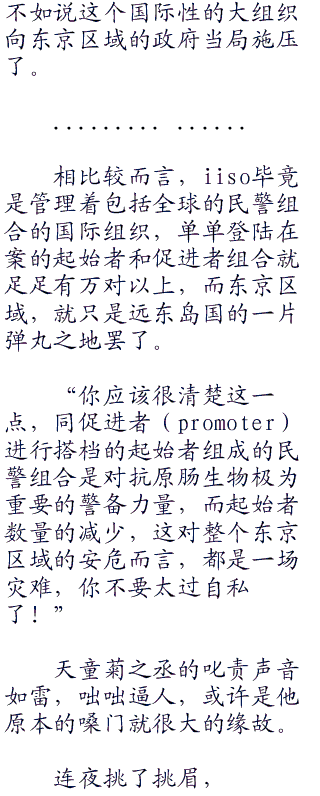 不如说这个国际性的大组织
向东京区域的政府当局施压
了。
......... ......
相比较而言，iiso毕竟
是管理着包括全球的民警组
合的国际组织，单单登陆在
案的起始者和促进者组合就
足足有万对以上，而东京区
域，就只是远东岛国的一片
弹丸之地罢了。
“你应该很清楚这一
点，同促进者（promoter）
进行搭档的起始者组成的民
警组合是对抗原肠生物极为
重要的警备力量，而起始者
数量的减少，这对整个东京
区域的安危而言，都是一场
灾难，你不要太过自私
了！”
天童菊之丞的叱责声音
如雷，咄咄逼人，或许是他
原本的嗓门就很大的缘故。
连夜挑了挑眉，